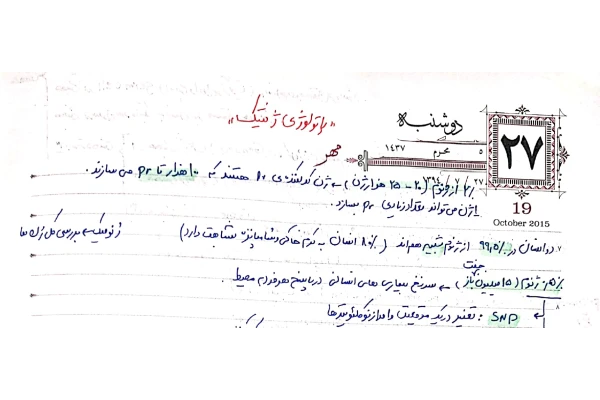 ۲۷
دوشنبه
۵ محرم ۱۴۳۷
مهر
۲۷ ۱۳۹۴
19
October 2015
«پاتولوژی ژنتیک»
٪۲ از ژنوم (۲۰ - ۲۵ هزار ژن) ← ژن کدکننده‌ی Pr هستند که ۱۰۰ هزار تا Pr می سازند.
۱ ژن می تواند تعداد زیادی Pr بسازد.
دو انسان در ٪۹۹,۵ از ژنوم شبیه هم اند (٪۸۰ انسان به کرم خاکی و شامپانزه شباهت دارد) ژنومیک ← بررسی کل ژن ها
٪۰,۵ ژنوم (۱۵ میلیون جفت باز) ← سرنخ بیماری های انسانی در پاسخ هر فرد به محیط.
SNP : تغییر در یک موقعیت واحد از نوکلئوتیدها